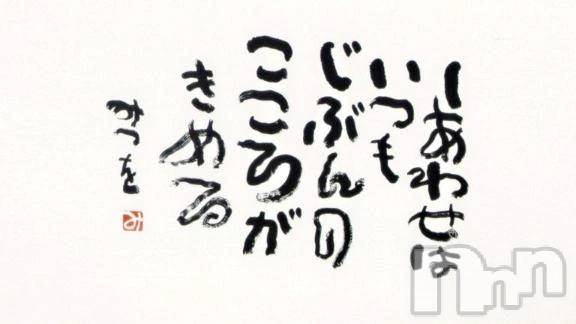 しあわせは
いつも
じぶんの
こころが
きめる
みつを
み
nn